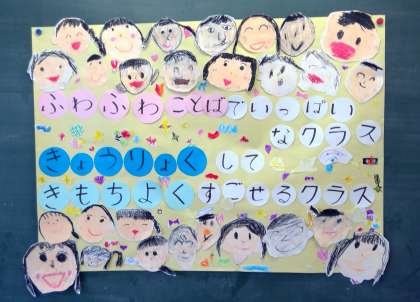 ふわふわことばでいっぱい
なクラス
きょうりょくして
きもちよくすごせるクラス